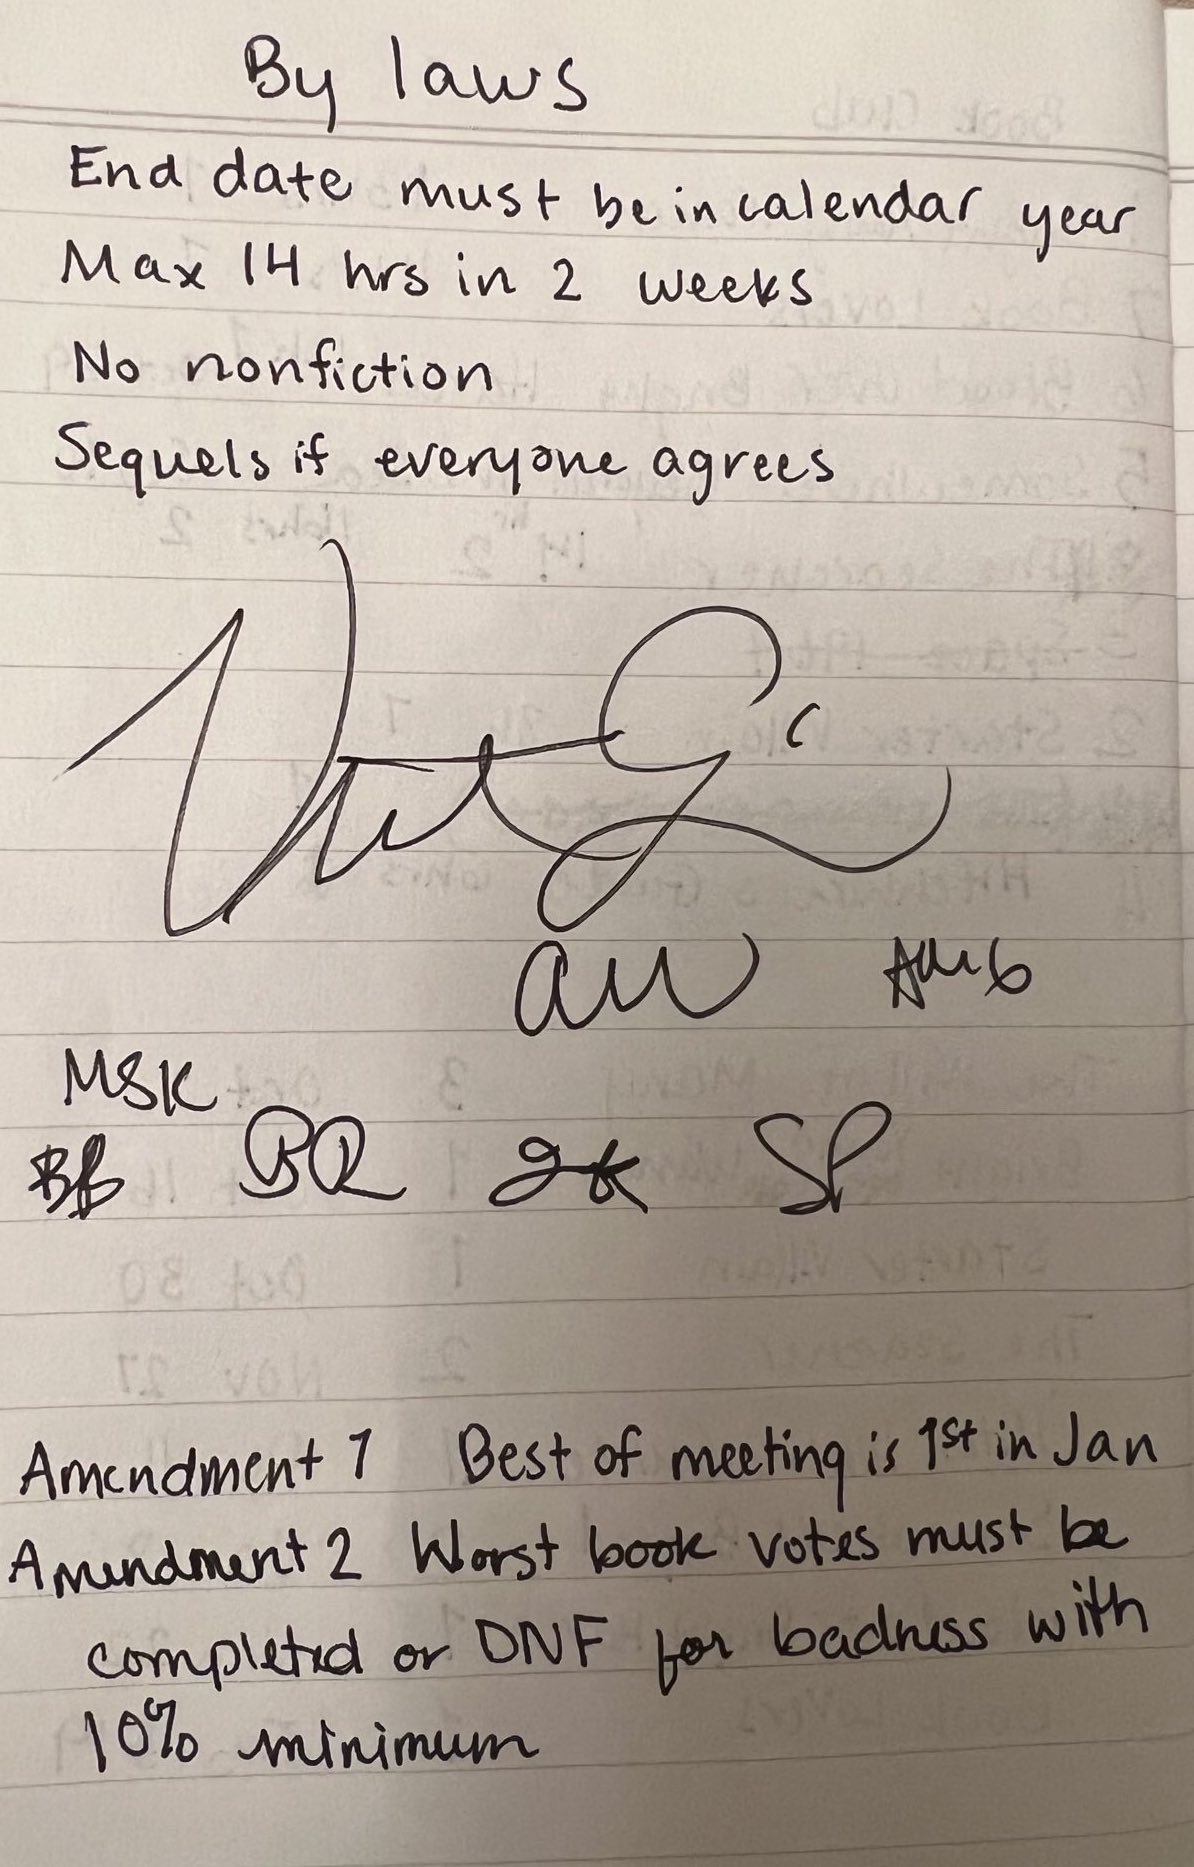 By laws
End date must be in calendar year
Max 14 hrs in 2 weeks
No nonfiction
Sequels if everyone agrees
aw
MSK
BR SP
Amendment 1 Best of meeting is 1st in Jan
Amendment 2 Worst book votes must be
completed or DNF for badness with
10% minimum